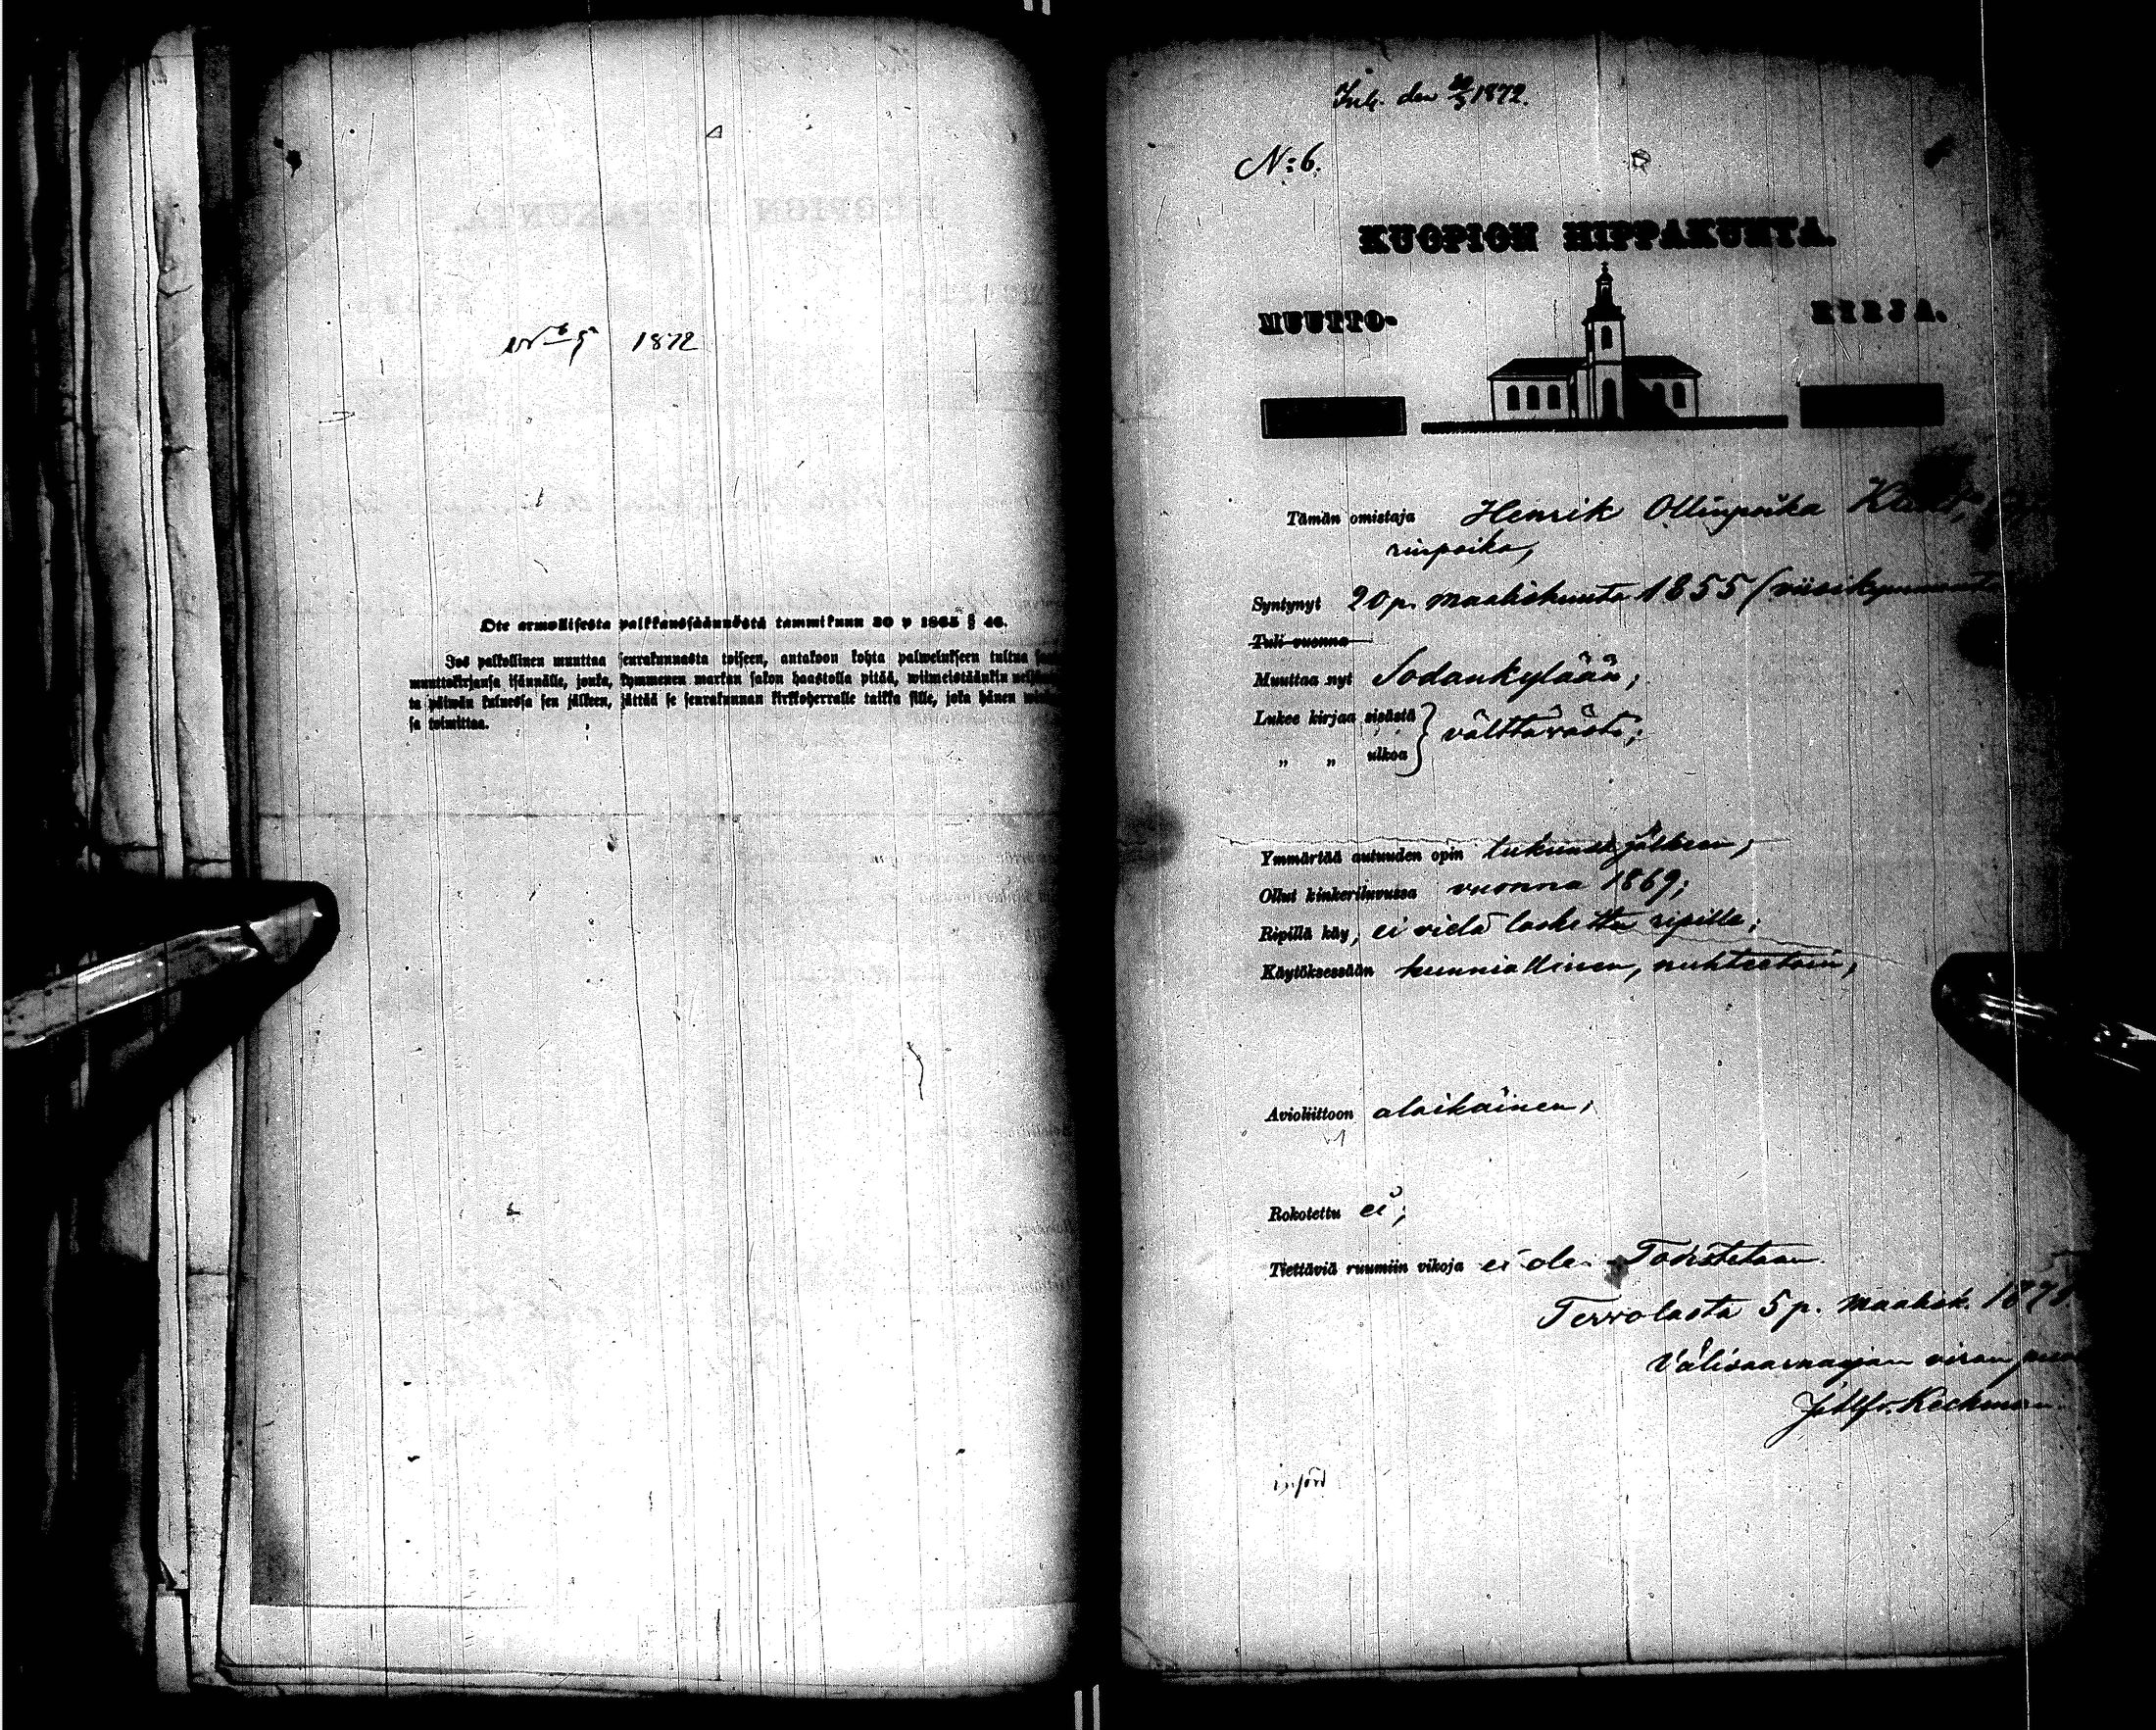 1872
Ote armollisesta palkkaussäännöstä tammikuun 30 p 1865 § 46.
Jos palkollinen muuttaa seurakunnasta toiseen, antakoon kohta palwelukseen tultua
muuttokirjansa isännälle, jonka, kymmenen markan sakon haastolla pitää, wiimeistäänkin
ta päiwän kuluessa sen jälkeen, jättää se seurakunnan kirkkoherralle taikka sille, joka hänen
sa toimittaa.
Ink. den 20/3 1872.
N:6.
KUOPION HIPPAKUNTA.
MUUTTO- KIRJA.
Tämän omistaja Henrik Ollinpoika
rinpoika,
Syntynyt 20 p. maaliskuuta 1855 (viisikymmentä
Tuli vuonna
Muuttaa nyt Sodankylään;
Lukee kirjaa sisästä } välttävästi;
„ „ ulkoa
Ymmärtää autuuden opin lukunsa jälkeen;
Ollut kinkeriluvussa vuonna 1869;
Ripillä käy, ei vielä laskettu ripille;
Käytöksessään kunniallinen, nuhteetoin;
Avioliittoon alaikäinen;
Rokotettu ei;
Tiettäviä ruumiin vikoja ei ole. Todistetaan.
Tervolasta 5 p. maalisk. 187
Välisaarnaajan viran
J. Alfr. Keckman.
införd